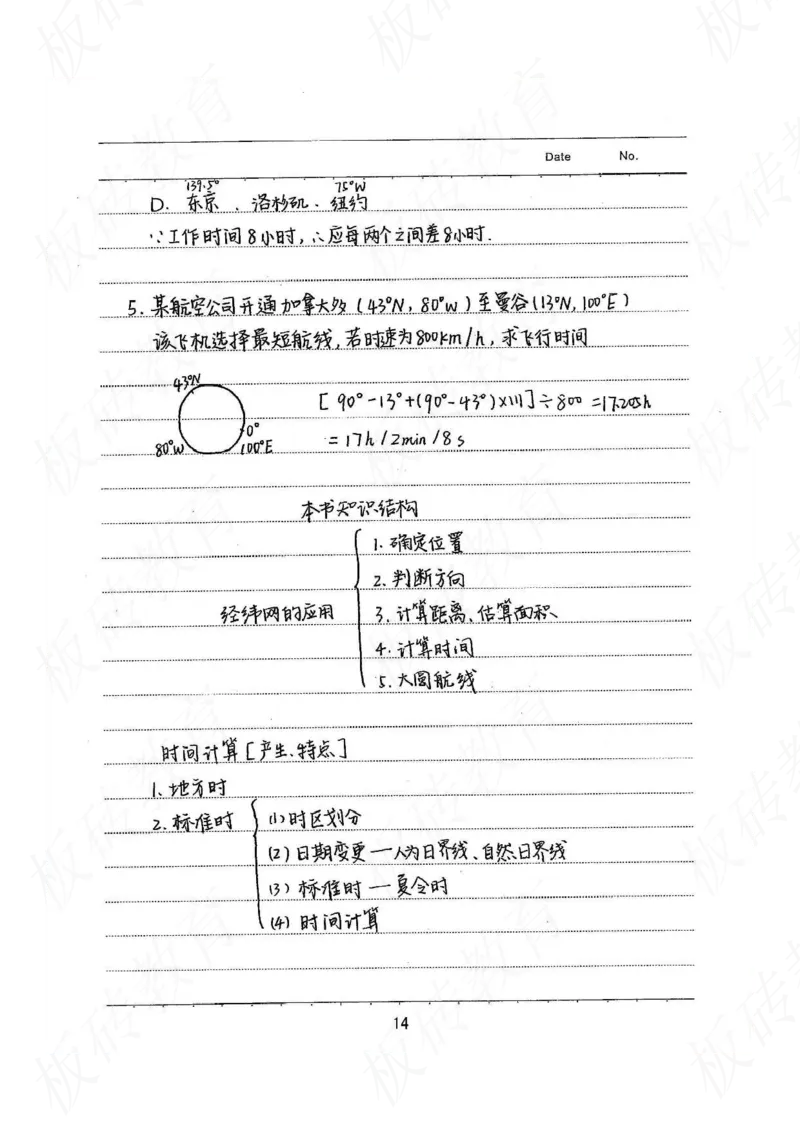 Date No.
139.5° 75°W
D. 东京、洛杉矶、纽约
∵工作时间8小时,∴应每两个之间差8小时.
5. 某航空公司开通加拿大多(43°N,80°W)至曼谷(13°N,100°E)
该飞机选择最短航线,若时速为800km/h,求飞行时间
43°N
[90°-13°+(90°-43°)×111]÷800 =17.205h
0°
80°W 100°E
=17h12min18s
本书知识结构
1.确定位置
2.判断方向
经纬网的应用 3.计算距离、估算面积
4.计算时间
5.大圆航线
时间计算[产生、特点]
1.地方时
2.标准时 (1)时区划分
(2)日期变更—人为日界线、自然日界线
(3)标准时—夏令时
(4)时间计算
14
板砖教育